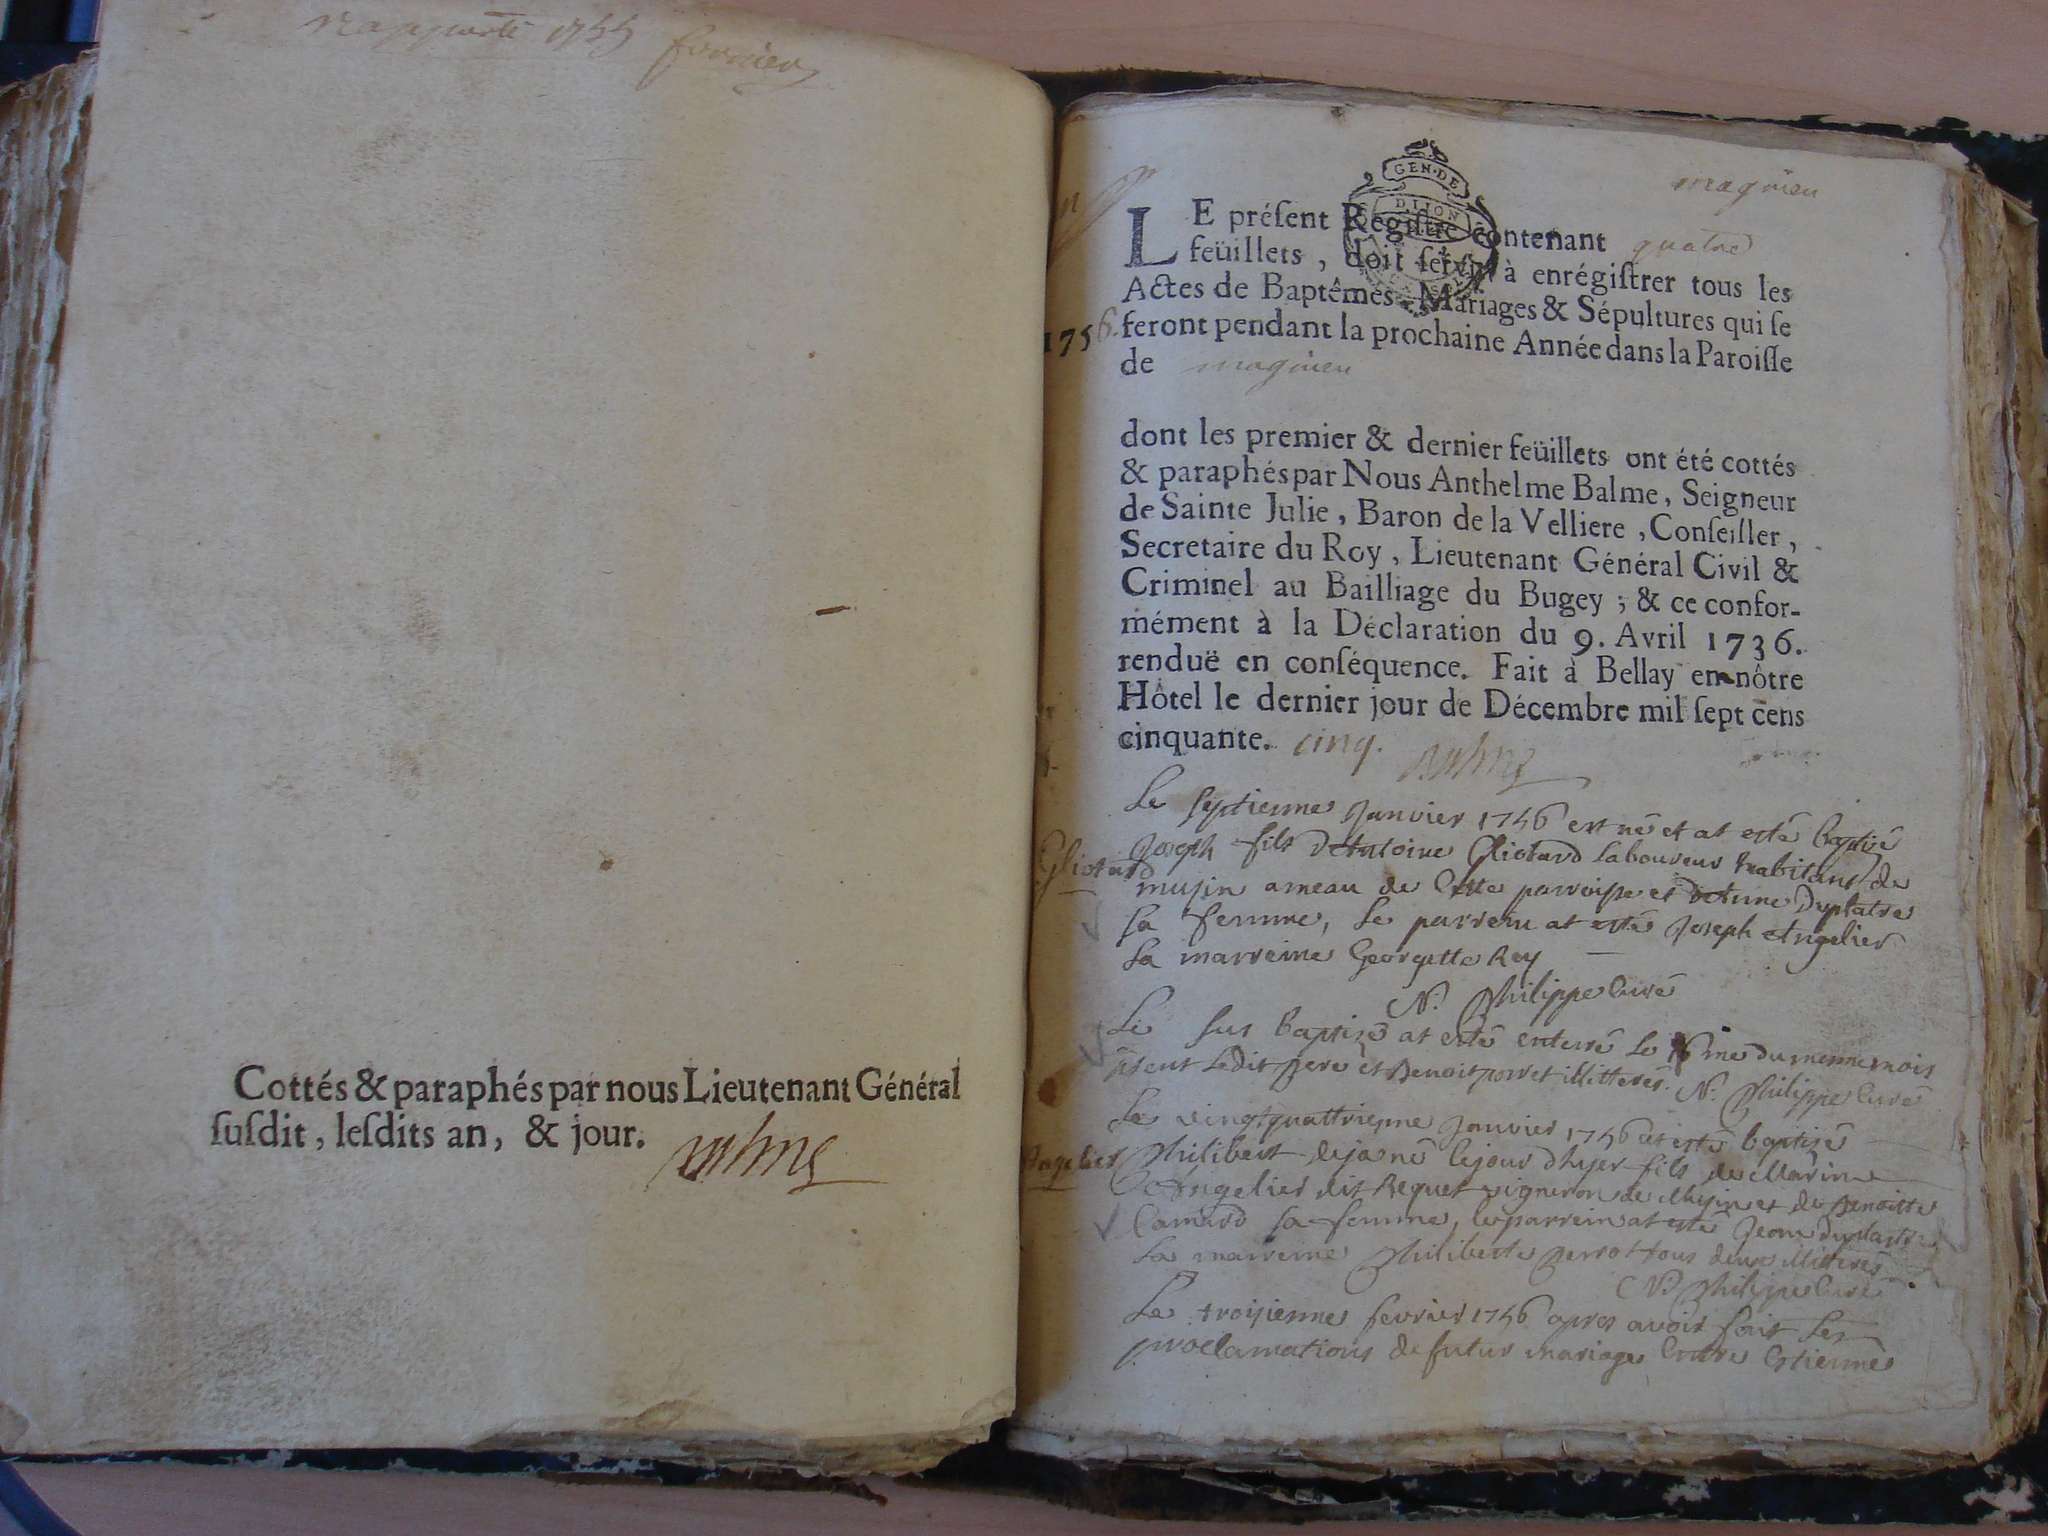 rapporté 1755
fornier
Cottés & paraphés par nous Lieutenant Général
ſuſdit, leſdits an, & jour.
magnieu
GEN·DE
DIJON
LE préſent Regiſtre contenant quatre
feüillets, doit ſervir à enrégiſtrer tous les
Actes de Baptêmes, Mariages & Sépultures qui ſe
1756. feront pendant la prochaine Année dans la Paroiſſe
de magnieu
dont les premier & dernier feüillets ont été cottés
& paraphés par Nous Anthelme Balme, Seigneur
de Sainte Julie, Baron de la Velliere, Conſeiller,
Secretaire du Roy, Lieutenant Général Civil &
Criminel au Bailliage du Bugey ; & ce confor-
mément à la Déclaration du 9. Avril 1736.
renduë en conſéquence. Fait à Bellay en nôtre
Hôtel le dernier jour de Décembre mil ſept cens
cinquante. cinq.
Le septieme Janvier 1756 est né et at esté baptisé
Joseph fils d'Antoine Gliotard laboureur habitant de
Gliotard
musin ameau de cette parroisse et d'Anne Duplatre
sa femme, le parrein at esté Joseph Angelier
la marreine Georgette Rey
N. Philippe Curé
Le sus baptisé at esté enterré le me du meme mois
present ledit pere et Benoit porret illitterés. N. Philippe Curé
Le vingtquattrieme Janvier 1756 at esté baptisé
Angelier
Philibert deja né le jour d'hyer fils de Marin
Angelier dit Requet vigneron de Musin et de Benoitte
Camard sa femme, le parrein at esté Jean Duplastre
la marreine Philiberte perrot tous deux illitterés
N. Philippe Curé
Le troisieme fevrier 1756 apres avoir fait les
proclamations de futur mariage entre Estienne